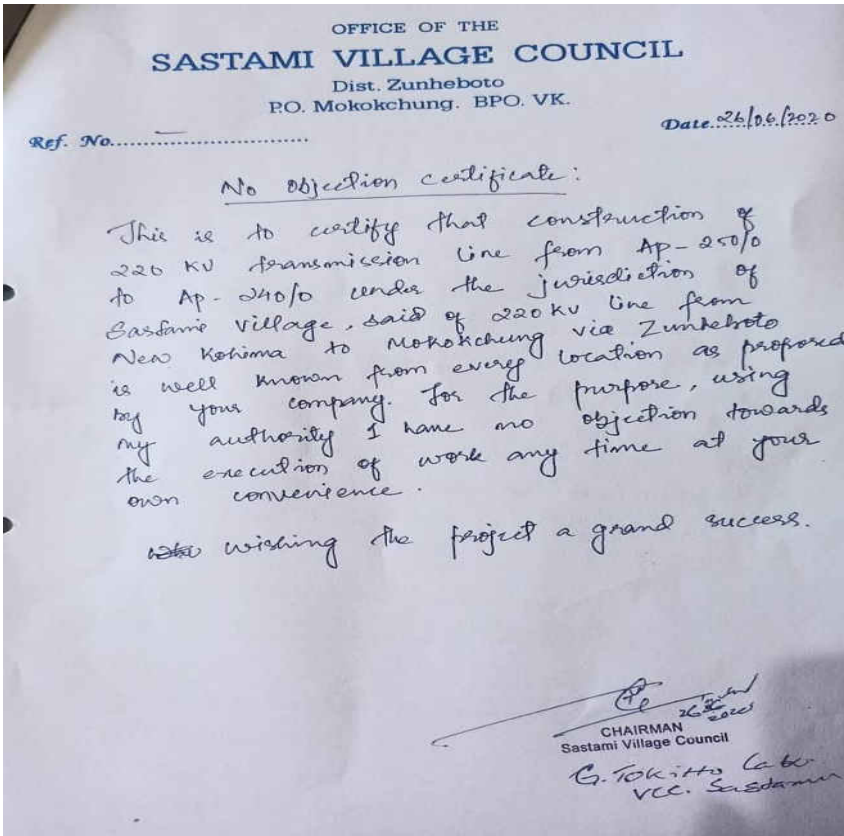 OFFICE OF THE
SASTAMI VILLAGE COUNCIL
Dist. Zunheboto
P.O. Mokokchung. BPO. VK.
Ref. No.................................. Date 26/06/2020
No objection certificate:
This is to certify that construction of
220 KV transmission line from Ap-250/0
to Ap-240/0 under the jurisdiction of
Sastami Village, said of 220KV line from
New Kohima to Mokokchung via Zunheboto
is well known from every location as proposed
by your company. For the purpose, using
my authority I have no objection towards
the execution of work any time at your
own convenience.
wishing the project a grand success.
CHAIRMAN
Sastami Village Council
G. TOKITTO
VCC.